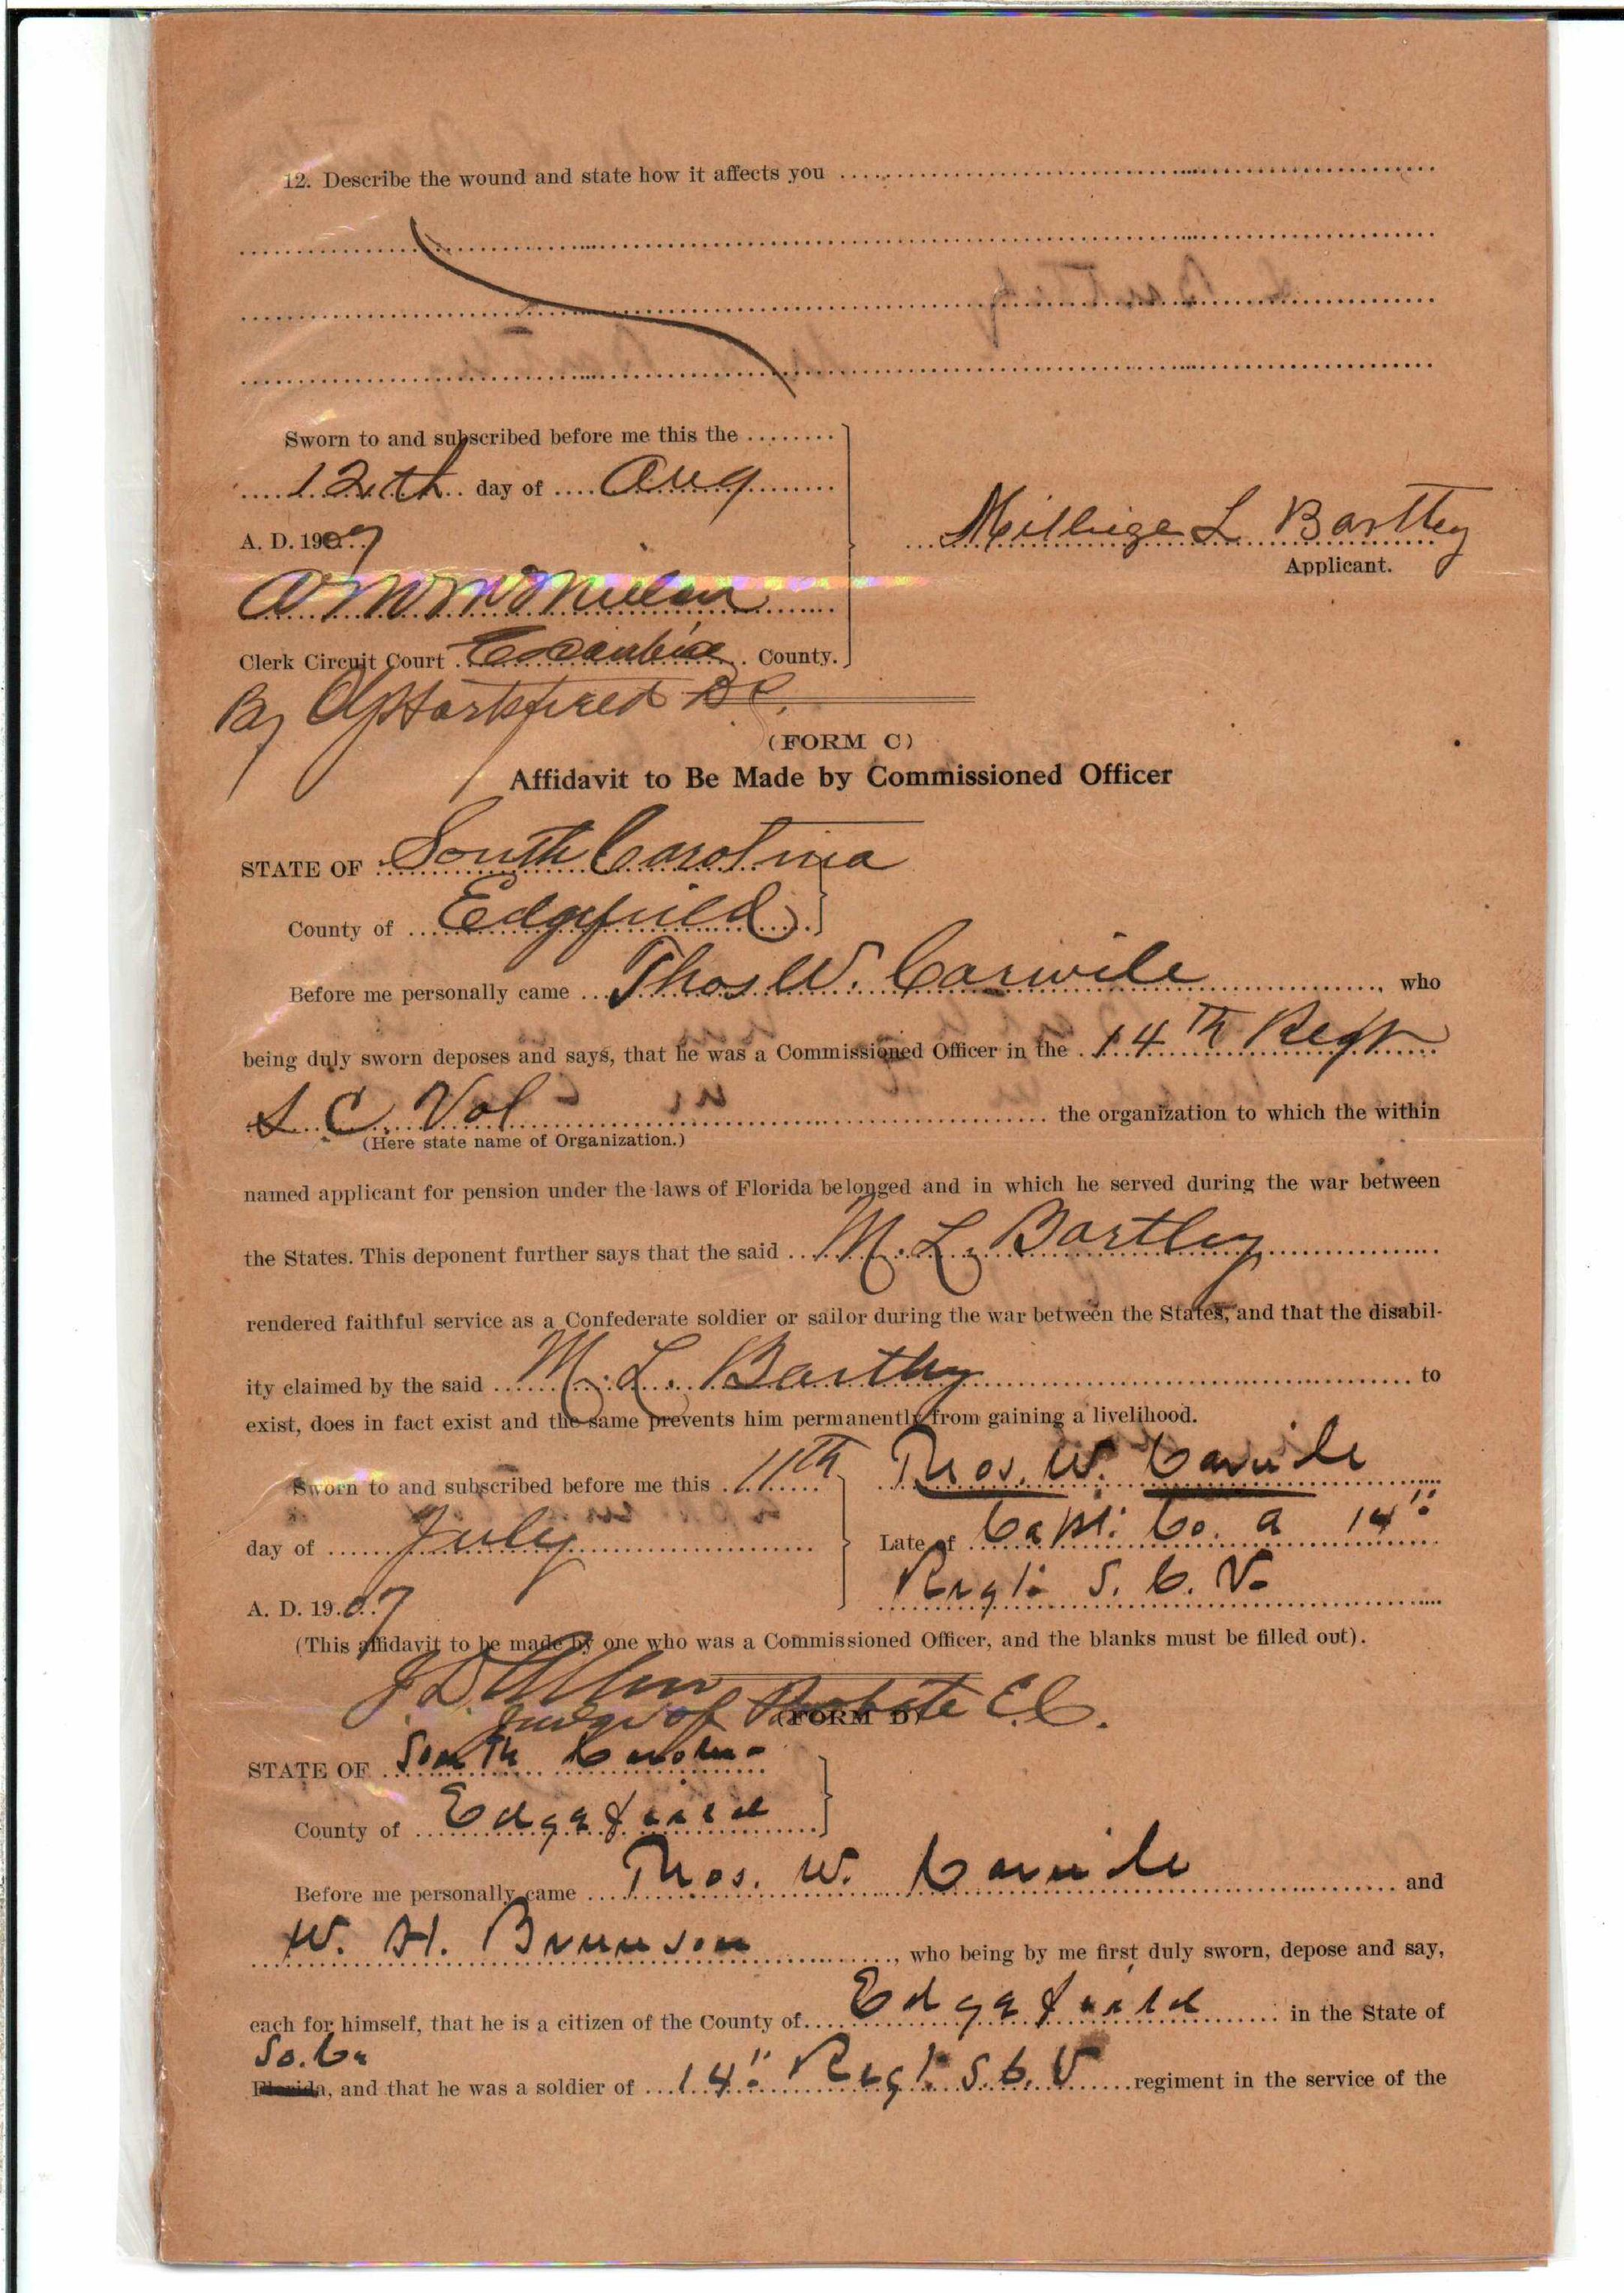 12. Describe the wound and state how it affects you
Sworn to and subscribed before me this the
12th day of Aug
A. D. 1907
Milledge L Bartley
Applicant.
A M McMillan
Clerk Circuit Court Escambia County.
By
(FORM C)
Affidavit to Be Made by Commissioned Officer
STATE OF South Carolina
County of Edgefield
Before me personally came Thos W. Carwile, who
being duly sworn deposes and says, that he was a Commissioned Officer in the 14th Regt
S. C. Vol the organization to which the within
(Here state name of Organization.)
named applicant for pension under the laws of Florida belonged and in which he served during the war between
the States. This deponent further says that the said M. L. Bartley
rendered faithful service as a Confederate soldier or sailor during the war between the States, and that the disabil-
ity claimed by the said M. L. Bartley to
exist, does in fact exist and the same prevents him permanently from gaining a livelihood.
Sworn to and subscribed before me this 11th
Thos. W. Carwile
day of July
Late of Capt. Co. a 14"
Regt. S. C. V.
A. D. 1907
(This affidavit to be made by one who was a Commissioned Officer, and the blanks must be filled out).
J. D. Allen
Judge of Probate E. C.
(FORM D)
STATE OF South Carolina
County of Edgefield
Before me personally came Thos. W. Carwile and
W. H. Brunson, who being by me first duly sworn, depose and say,
each for himself, that he is a citizen of the County of Edgefield in the State of
So. Ca
Florida, and that he was a soldier of 14" Regt. S. C. V regiment in the service of the